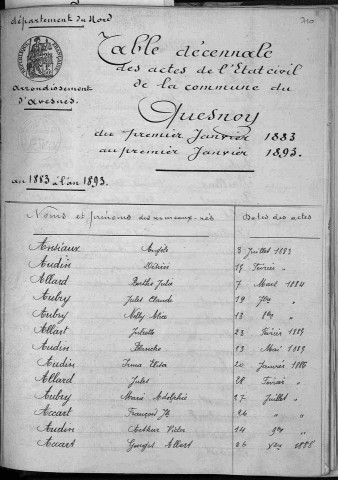 département du Nord
arrondissement
d'avesnes.
Table décennale
des actes de l'Etat civil
de la commune du
Quesnoy
du premier Janvier 1883
au premier Janvier 1893.
an 1883 à l'an 1893.
Noms et prénoms des nouveaux-nés Dates des actes
Ansiaux Angèle 3 Juillet 1883
Audin Désiré 19 Février "
Allard Berthe Julie 7 Mars 1884
Aubry Jules Claude 19 7bre "
Aubry Nelly Alice 13 8bre "
Allart Juliette 23 Février 1885
Audin Blanche 13 Mai 1885
Audin Irma Elisa 20 Janvier 1886
Allard Jules 28 Février "
Aubry Marie Adolphine 17 Juillet "
Accart François Jh 26 " "
Audin Arthur Victor 14 9bre "
Accart Georges Albert 26 1888